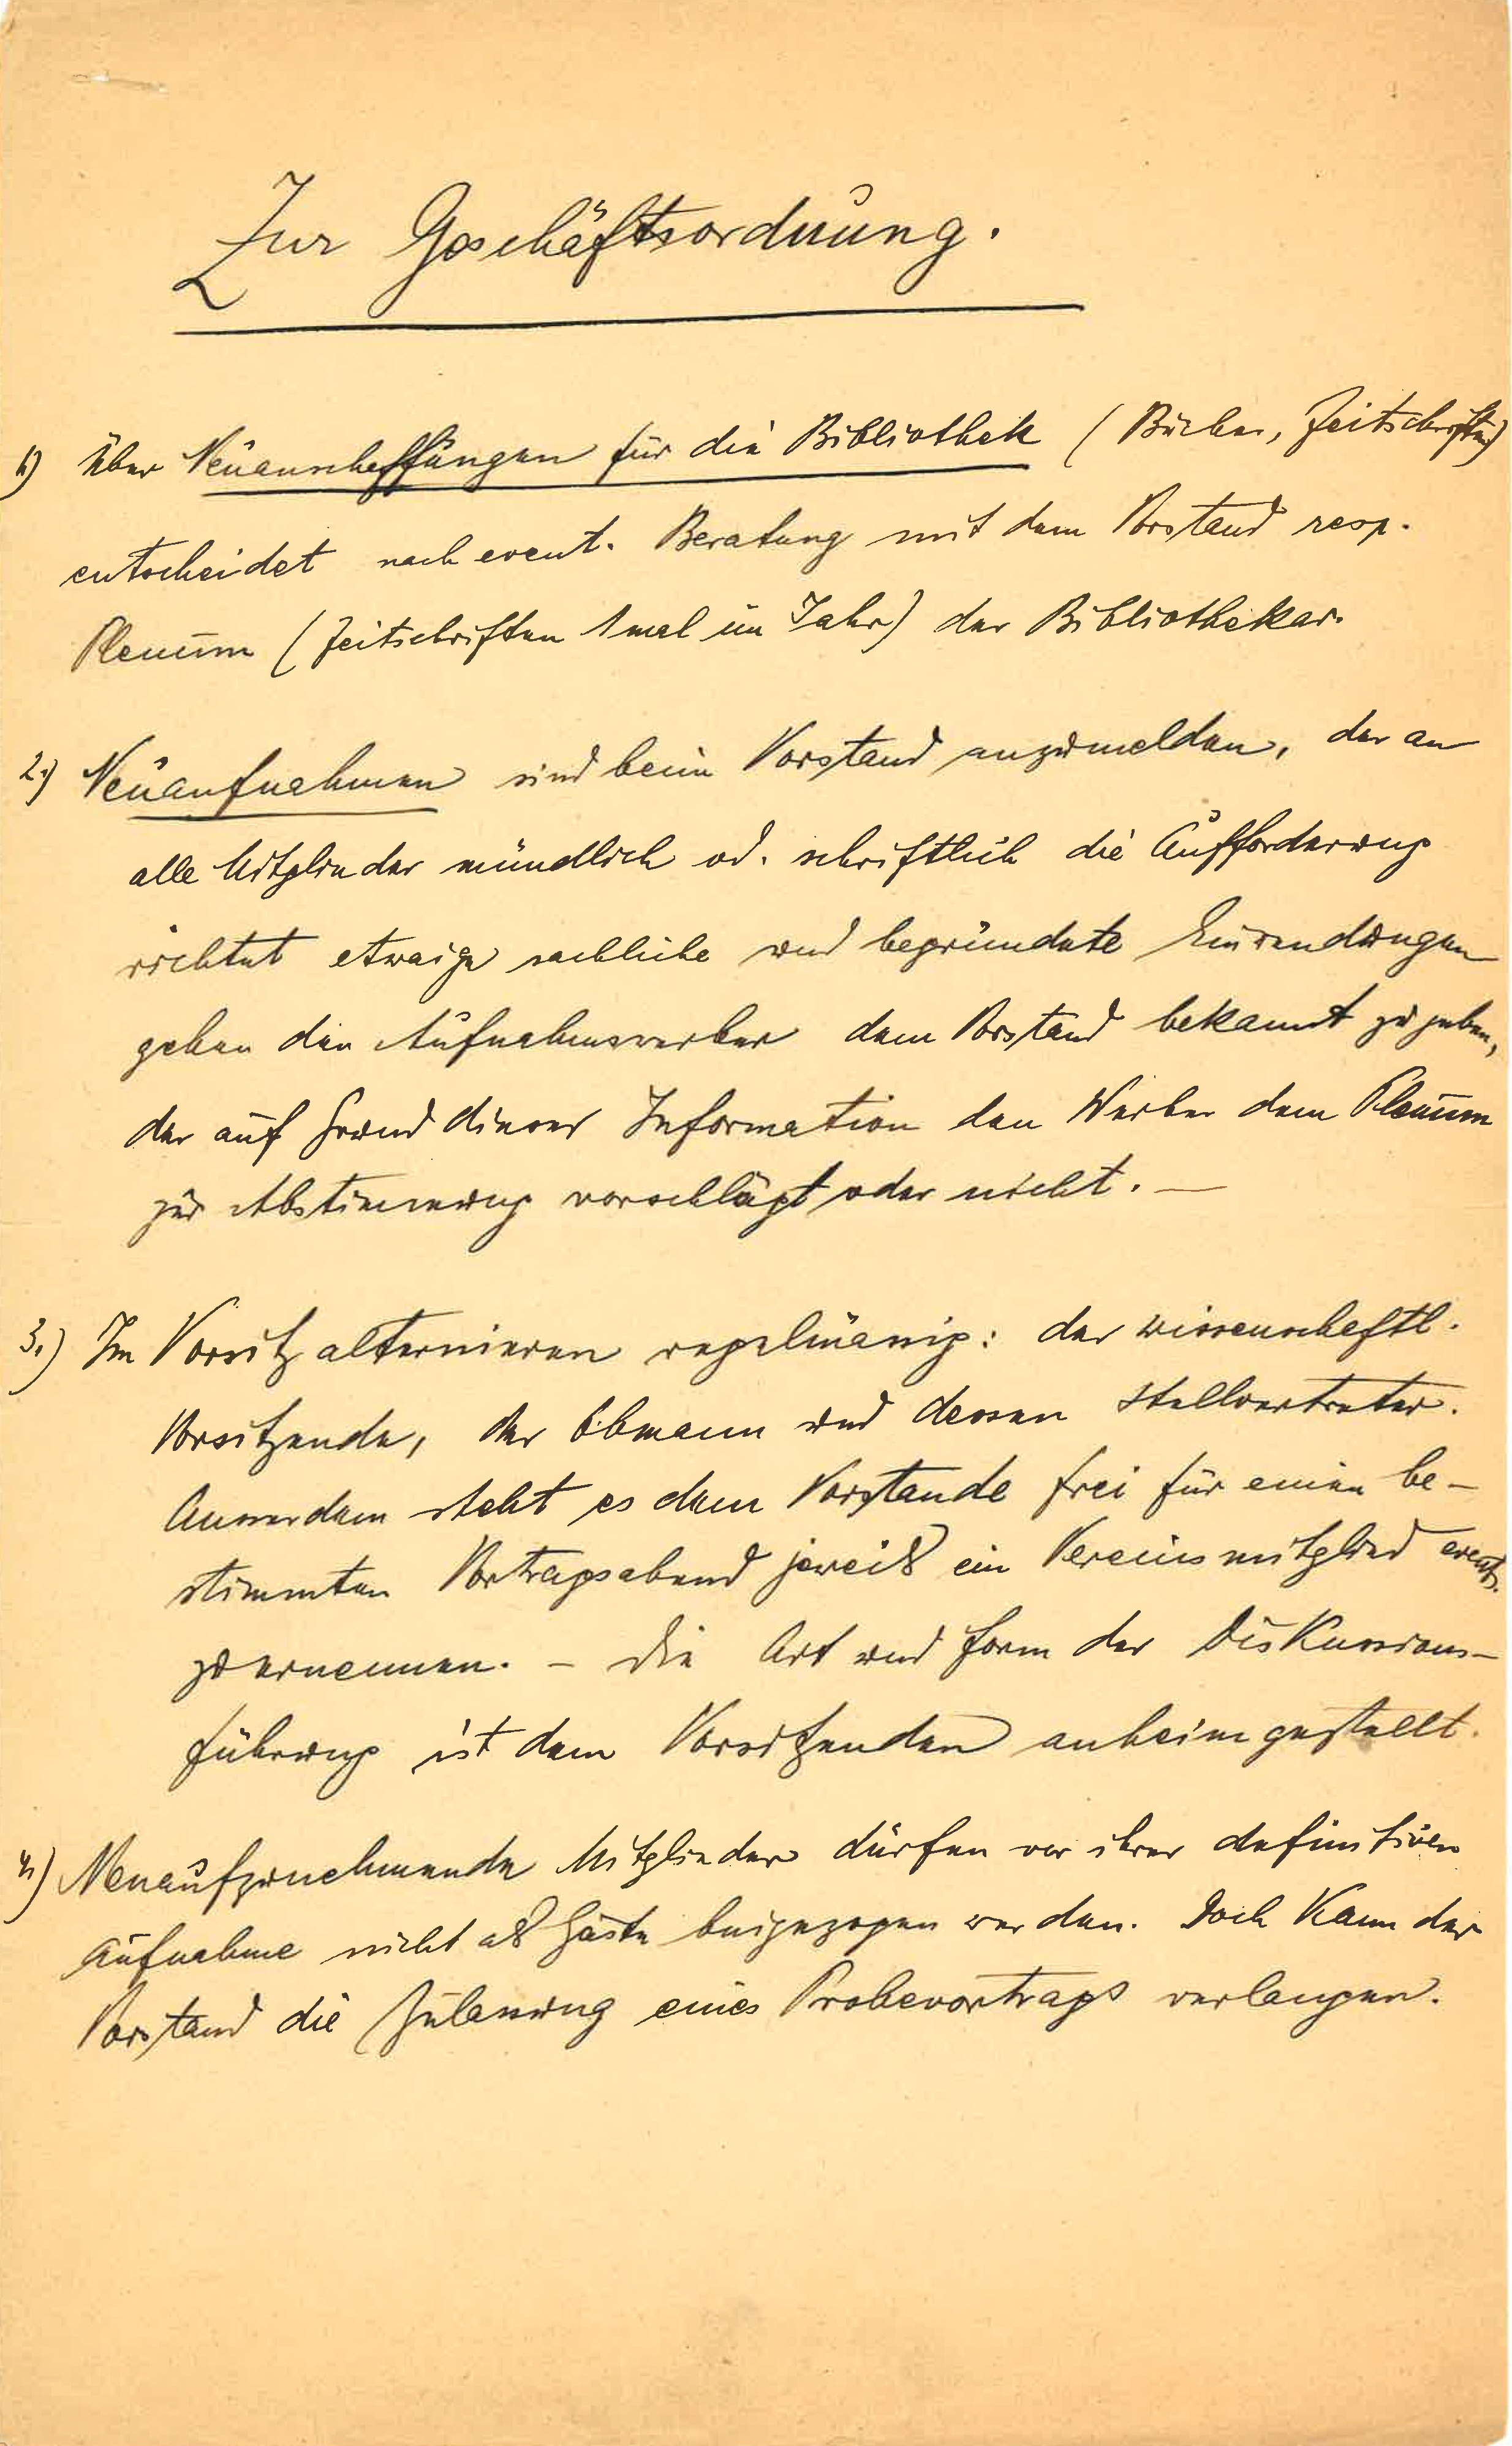 Zur Geschäftsordnung.
1) Über Neuanschaffungen für die Bibliothek (Bücher, Zeitschriften)
entscheidet nach event. Beratung mit dem Vorstand resp.
Plenum (Zeitschriften 1mal im Jahr) der Bibliothekar.
2.) Neuaufnahmen sind beim Vorstand anzumelden, der an
alle Mitglieder mündlich od. schriftlich die Aufforderung
richtet etwaige sachliche und begründete Einwendungen
gehen den Aufnahmswerber dem Vorstand bekannt zu geben,
der auf Grund dieser Information den Werber dem Plenum
zur Abstimmung vorschlägt oder nicht. —
3.) Im Vorsitz alternieren regelmässig: der wissenschaftl.
Vorsitzende, der Obmann und dessen Stellvertreter.
Ausserdem steht es dem Vorstande frei für einen be-
stimmten Vortragsabend jeweils ein Vereinsmitglied event.
zu ernennen. – Die Art und Form der Diskussions-
führung ist dem Vorsitzenden anheimgestellt.
4) Neuaufzunehmende Mitglieder dürfen vor ihrer definitiven
Aufnahme nicht als Gäste beigezogen werden. Doch kann der
Vorstand die Zulassung eines Probevortrags verlangen.